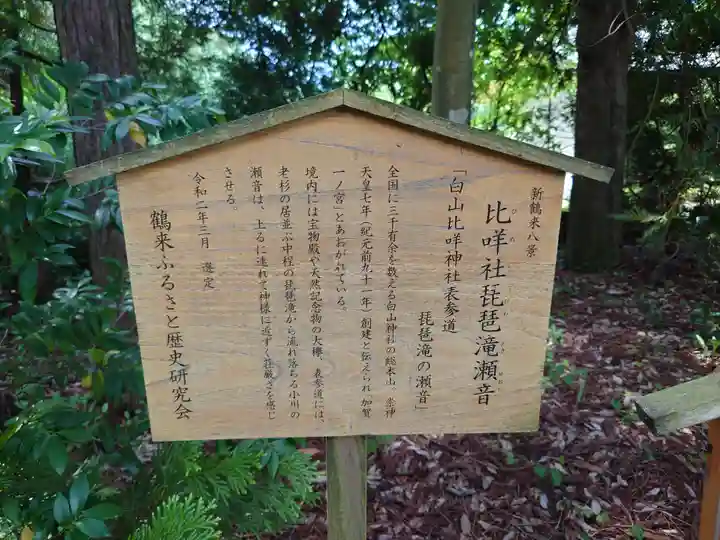 新鶴来八景
比咩社琵琶滝瀬音
「白山比咩神社表参道
琵琶滝の瀬音」
全国に三千有余を数える白山神社の総本山。崇神
天皇七年(紀元前九十一年)創建と伝えられ「加賀
一ノ宮」とあおがれている。
境内には宝物殿や天然記念物の大欅、表参道には、
老杉の居並ぶ中程の琵琶滝から流れ落ちる小川の
瀬音は、上るに連れて神様に近ずく荘厳さを感じ
させる。
令和二年三月 選定
鶴来ふるさと歴史研究会